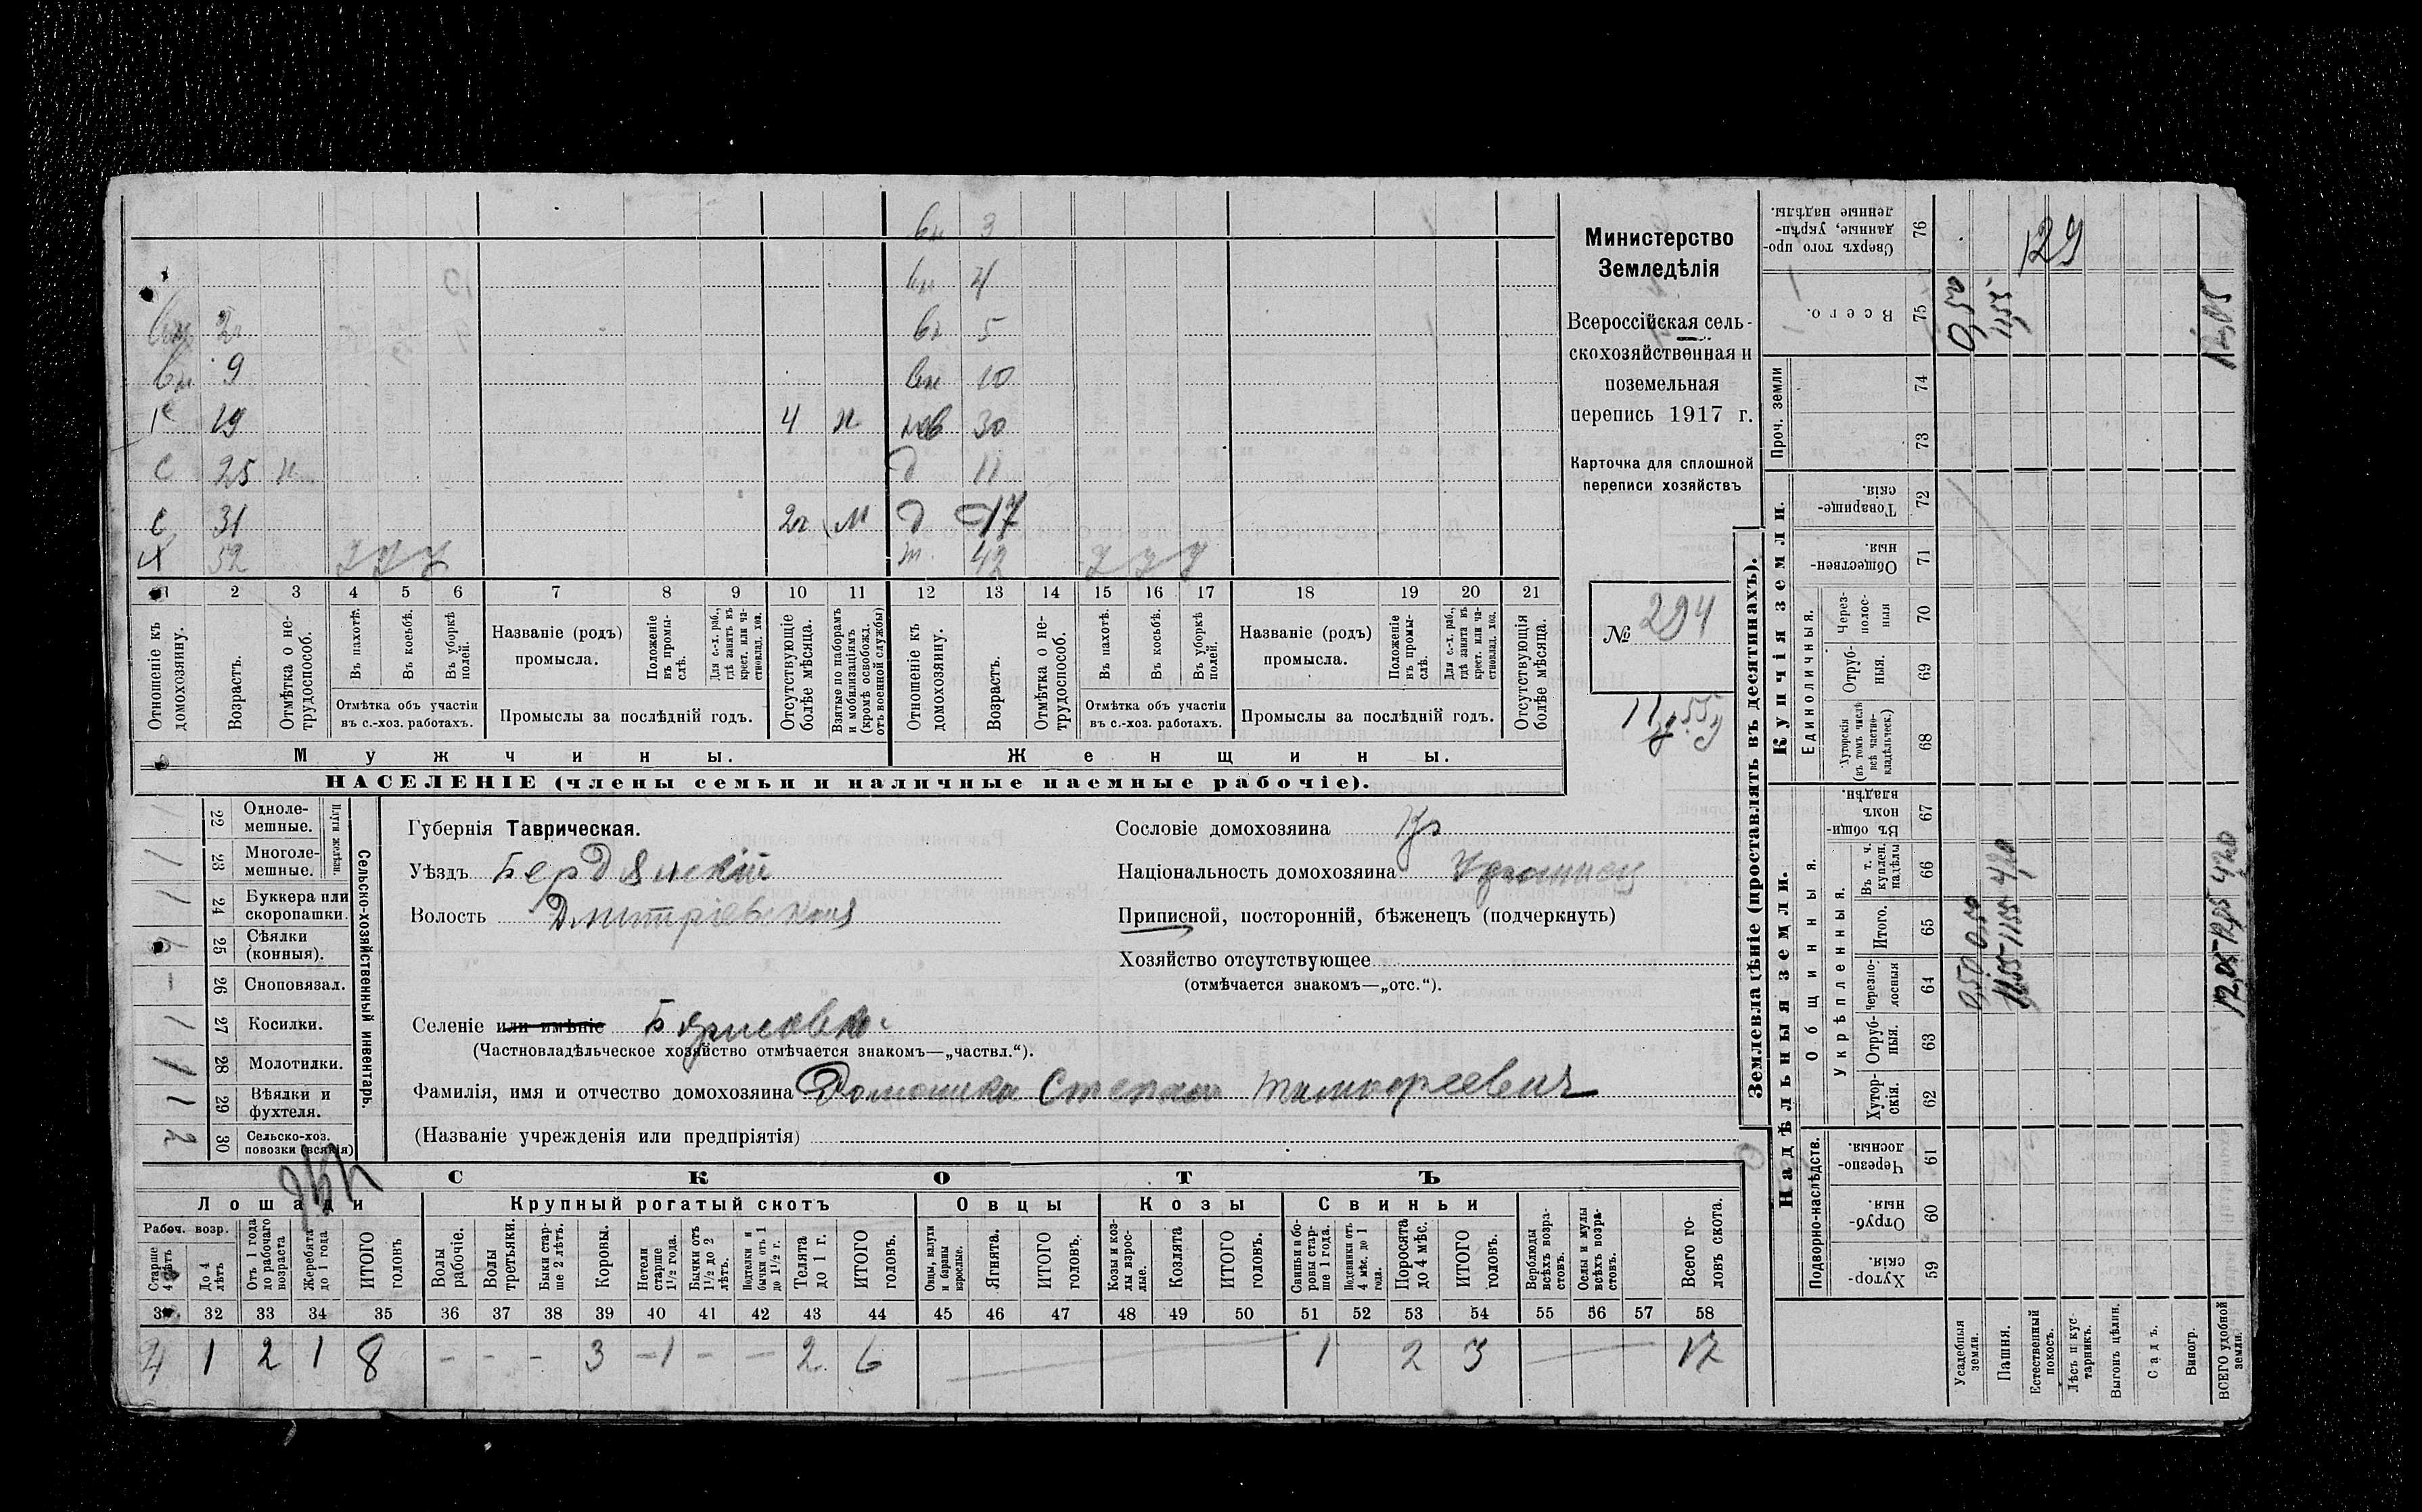 вн 3
вн 4
вн 2г вн 5
вн 9 вн 10
с 19 4 н нев 30
с 25 н д 11
с 31 2г м д 17
х 52 ж. 42
1 2 3 4 5 6 7 8 9 10 11 12 13 14 15 16 17 18 19 20 21
Отношеніе къ домохозяину.
Возрастъ.
Отмѣтка о не-трудоспособ.
Въ пахотѣ.
Въ косьбѣ.
Въ уборкѣ полей.
Отмѣтка объ участіи въ с.-хоз. работахъ.
Названіе (родъ) промысла.
Положеніе въ промы-слѣ.
Для с.-х. раб., гдѣ занятъ въ крест. или ча-стновлад. хоз.
Промыслы за послѣдній годъ.
Отсутствующіе болѣе мѣсяца.
Взятые по наборамъ и мобилизаціямъ (кромѣ освобожд. отъ военной службы)
Отношеніе къ домохозяину.
Возрастъ.
Отмѣтка о не-трудоспособ.
Въ пахотѣ.
Въ косьбѣ.
Въ уборкѣ полей.
Отмѣтка объ участіи въ с.-хоз. работахъ.
Названіе (родъ) промысла.
Положеніе въ промы-слѣ.
Для с.-х. раб., гдѣ занята въ крест. или ча-стновлад. хоз.
Промыслы за послѣдній годъ.
Отсутствующія болѣе мѣсяца.
Мужчины.
Женщины.
НАСЕЛЕНІЕ (члены семьи и наличные наемные рабочіе).
Министерство
Земледѣлія
Всероссійская сель-
скохозяйственная и
поземельная
перепись 1917 г.
Карточка для сплошной
переписи хозяйствъ
№ 294
Сельско-хозяйственный инвентарь.
Плуги желѣзн.
1 22 Одноле-мешные.
1 23 Многоле-мешные.
1 24 Буккера или скоропашки.
25 Сѣялки (конныя).
– 26 Сноповязал.
1 27 Косилки.
1 28 Молотилки.
1 29 Вѣялки и фухтеля.
2 30 Сельско-хоз. повозки (всякія)
Губернія Таврическая.
Уѣздъ Бердянскій
Волость Дмитріевская
Сословіе домохозяина Кр
Національность домохозяина Украинец
Приписной, посторонній, бѣженецъ (подчеркнуть)
Хозяйство отсутствующее
(отмѣчается знакомъ—„отс.“).
Селеніе или имѣніе Борисовка
(Частновладѣльческое хозяйство отмѣчается знакомъ—„частвл.“).
Фамилія, имя и отчество домохозяина Домашка Степан Тимофеевич
(Названіе учрежденія или предпріятія)
СКОТЪ
Лошади
Крупный рогатый скотъ
Овцы
Козы
Свиньи
Рабоч. возр.
Старше 4 лѣтъ
До 4 лѣтъ
Отъ 1 года до рабочаго возраста
Жеребята до 1 года
ИТОГО головъ
Волы рабочіе.
Волы третьяки.
Быки стар-ше 2 лѣтъ.
Коровы.
Нетели старше 1½ года.
Бычки отъ 1½ до 2 лѣтъ.
Подтелки и бычки отъ 1 до 1½ г.
Телята до 1 г.
ИТОГО головъ.
Овцы, валухи и бараны взрослые.
Ягнята.
ИТОГО головъ.
Козы и коз-лы взрос-лые.
Козлята
ИТОГО головъ.
Свиньи и бо-ровы стар-ше 1 года.
Подсвинки отъ 4 мѣс. до 1 года.
Поросята до 4 мѣс.
ИТОГО головъ.
Верблюды всѣхъ возра-стовъ.
Ослы и мулы всѣхъ возра-стовъ.
Всего го-ловъ скота.
32 33 34 35 36 37 38 39 40 41 42 43 44 45 46 47 48 49 50 51 52 53 54 55 56 57 58
4 1 2 1 8 – – – 3 – 1 – – 2 6 1 2 3 17
Землевладѣніе (проставлять въ десятинахъ).
Надѣльныя земли.
Купчія земли.
Проч. земли
Подворно-наслѣдств.
Общинныя.
Укрѣпленныя.
Единоличныя.
Хутор-скія. 59
Отруб-ныя. 60
Черезпо-лосныя. 61
Хутор-скія. 62
Отруб-ныя. 63
Черезпо-лосныя 64
Итого. 65
Въ т. ч. куплен. надѣлы 66
Въ общи-номъ владѣн. 67
Хуторскія (въ томъ числѣ всѣ частно-владѣльческ.) 68
Отруб-ныя. 69
Через-полос-ныя 70
Обществен-ныя. 71
Товарище-скія. 72
73
74
Всего. 75
Сверхъ того про-данные, укрѣп-ленные надѣлы. 76
Усадебныя земли. 0,50 0,50 0,50
Пашня. 11,55 11,55 4,20 11,55
Естественный покосъ.
129
Лѣсъ и кус-тарникъ.
Выгонъ цѣлин.
Садъ.
Виногр.
ВСЕГО удобной земли. 12,05 12,05 4,20 12,05